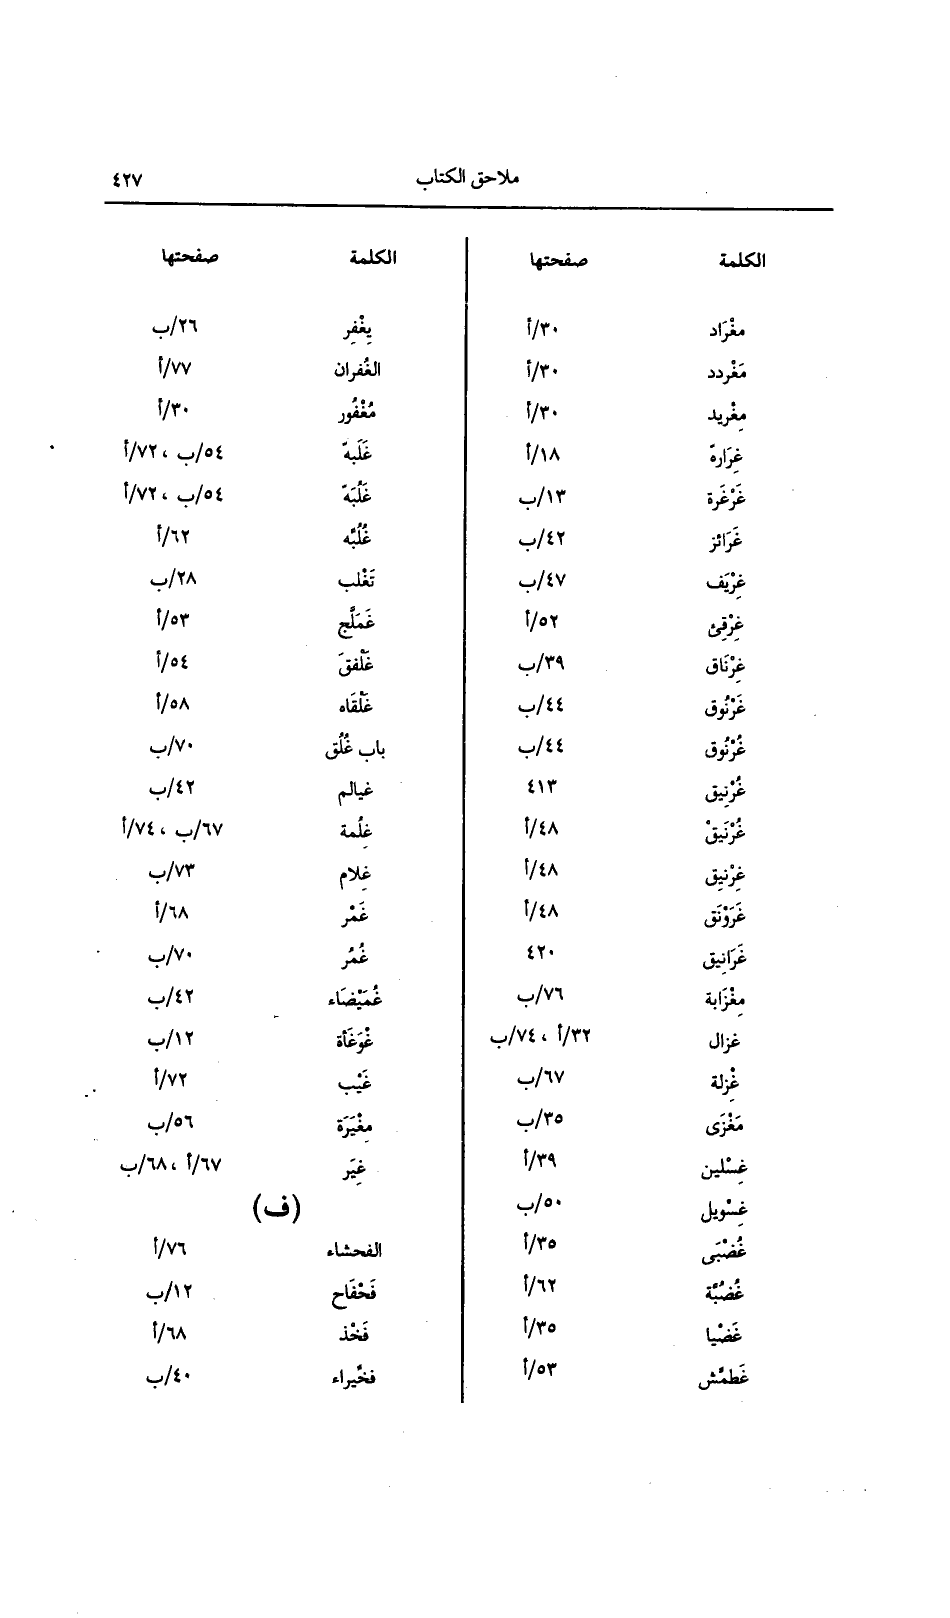 ملاحق الكتاب ٤٢٧
الكلمة صفحتها
مغْرَاد ٣٠/أ
مَغْردد ٣٠/أ
مغْرِيد ٣٠/أ
غِرَارةّ ١٨/أ
غَرْغَرة ١٣/ب
غَرَائز ٤٢/ب
غِرْيَف ٤٧/ب
غِرْقِئ ٥٢/أ
غِرْنَاق ٣٩/ب
غَرْنُوق ٤٤/ب
غُرْنُوق ٤٤/ب
غُرْنِيق ٤١٣
غُرْنَيقْ ٤٨/أ
غِرْنِيق ٤٨/أ
غَرَوْنَق ٤٨/أ
غَرَانِيق ٤٢٠
مِغْزَابة ٧٦/ب
غزال ٣٢/أ ، ٧٤/ب
غِزْلة ٦٧/ب
مَغْزَى ٣٥/ب
غِسْلين ٣٩/أ
غِسْويل ٥٠/ب
غُضْبَى ٣٥/أ
غُضُبَّة ٦٢/أ
غَضْيا ٣٥/أ
غَطمَّش ٥٣/أ
الكلمة صفحتها
يِغْفِر ٢٦/ب
الغُفران ٧٧/أ
مُغْفُور ٣٠/أ
غَلَبةّ ٥٤/ب ، ٧٢/أ
غَلُبَةّ ٥٤/ب ، ٧٢/أ
غُلُبَّه ٦٢/أ
تَغْلب ٢٨/ب
غَمَلَّج ٥٣/أ
غَلْفقَ ٥٤/أ
غَلْقَاه ٥٨/أ
باب غُلُق ٧٠/ب
غيالم ٤٢/ب
غِلْمة ٦٧/ب ، ٧٤/أ
غِلام ٧٣/ب
غَمْر ٦٨/أ
غُمُر ٧٠/ب
غُمَيْضَاء ٤٢/ب
غْوَغَأة ١٢/ب
غَيْب ٧٢/أ
مغْيَرَة ٥٦/ب
غِيَر ٦٧/أ ، ٦٨/ب
(ف)
الفحشاء ٧٦/أ
فَحْفَاح ١٢/ب
فَخْذ ٦٨/أ
فخِّيراء ٤٠/ب